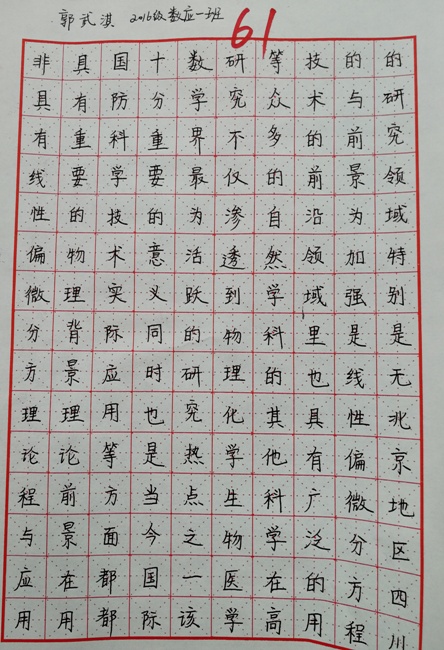 郭武淇 2016级数应一班
61
非具有线性偏微分方理论程与应用
具有重要的物理背景理论前景在用
国防科学技术实际应用等方面都都
十分重要的意义同时也是当今国际
数学界最为活跃的研究热点之一该
研究不仅渗透到物理化学生物医学
等众多的自然学科的其他科学在高
技术的前沿领域里也具有广泛的用
的与前景为加强是线性偏微分方程
的研究领域特别是无北京地区四川